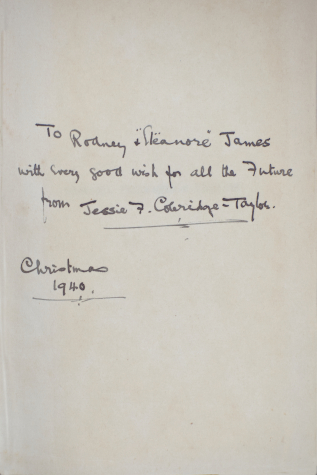 To Rodney & "Elëanore" James
with every good wish for all the Future
from Jessie F. Coleridge=Taylor.
Christmas
1940.